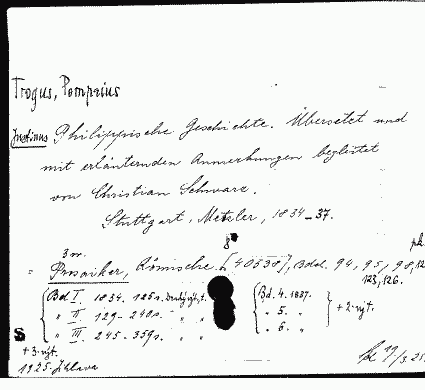 Trogus, Pompeius
Justinus Philippische Geschichte. Übersetzt und
mit erläuternden Anmerkungen begleitet
von Christian Schwarz.
Stuttgart, Metzler, 1834-37.
8°
= Prosaiker, Römische. [40538], Bdd. 94, 95, 98, 12
123, 126.
Bd I. 1834. 125s.
" II 129-240s. " "
" III 245-359s. " "
Bd. 4. 1837.
" 5. "
" 6. "
+ 2 výt.
S
+3 výt.
1925 Jihlava